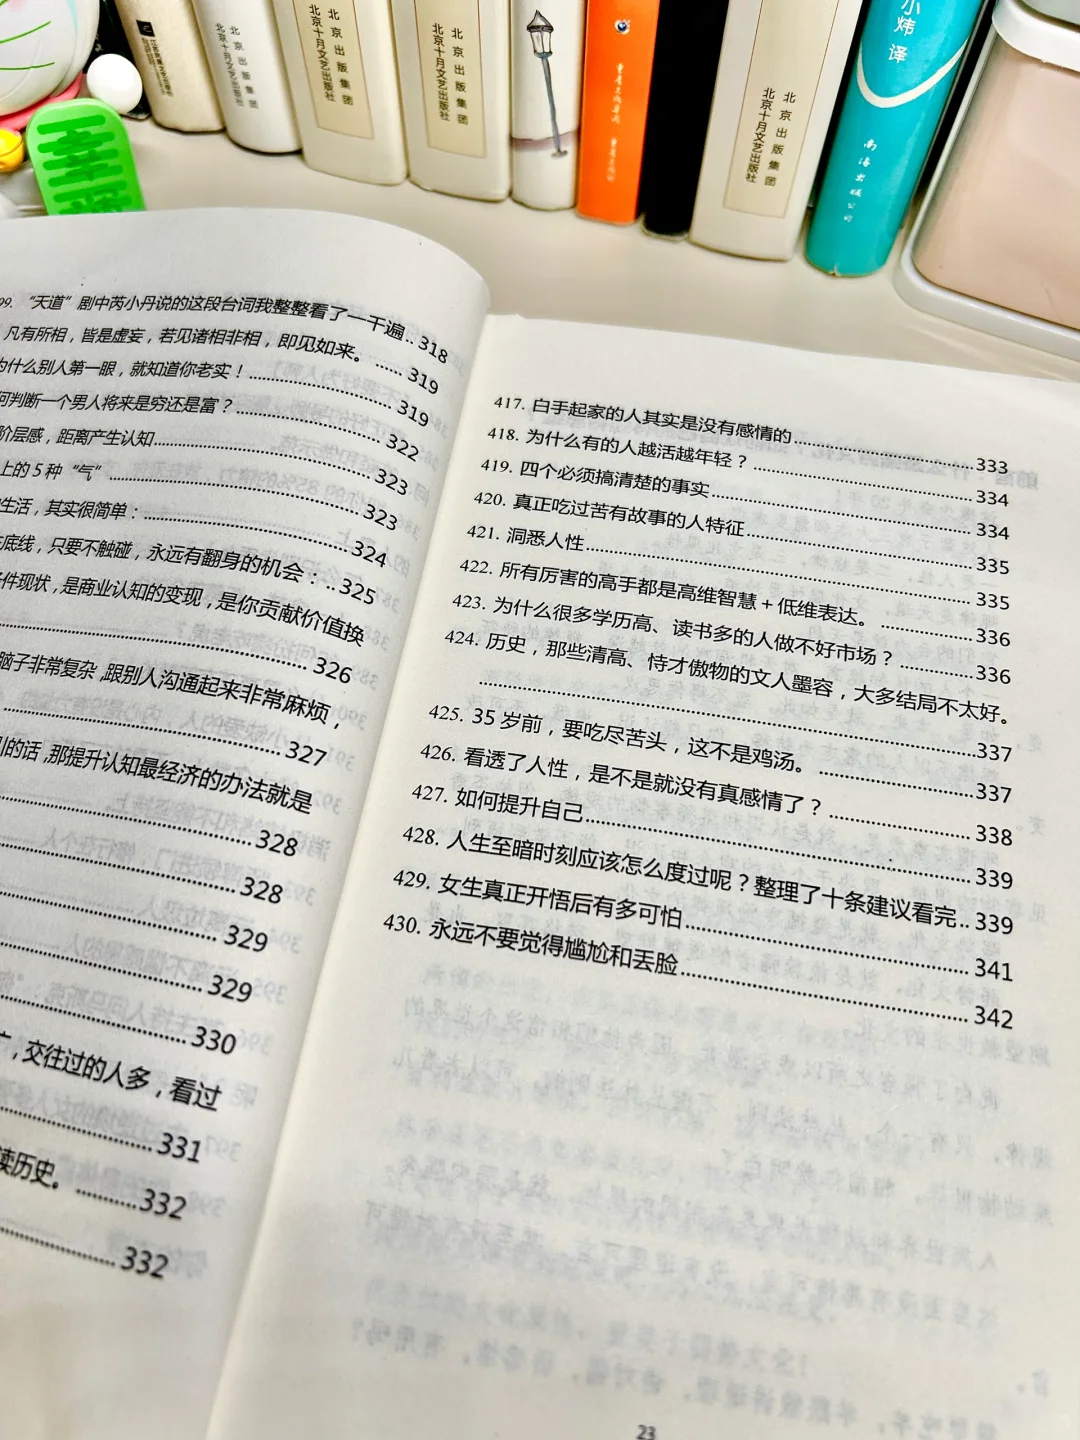 北京出版集团
北京十月文艺出版社
北京出版集团
北京十月文艺出版社
北京出版集团
北京十月文艺出版社
北京出版集团
北京十月文艺出版社
小炜 译
南海出版公司
99. “天道”剧中芮小丹说的这段台词我整整看了一千遍..318
凡有所相，皆是虚妄，若见诸相非相，即见如来。......319
为什么别人第一眼，就知道你老实！......319
何判断一个男人将来是穷还是富？......322
阶层感，距离产生认知......323
上的5种“气”......323
生活，其实很简单：......324
底线，只要不触碰，永远有翻身的机会：..325
件现状，是商业认知的变现，是你贡献价值换
......326
脑子非常复杂,跟别人沟通起来非常麻烦，
......327
的话,那提升认知最经济的办法就是
......328
......328
......329
......329
......330
，交往过的人多，看过
......331
读历史。......332
......332
417. 白手起家的人其实是没有感情的......333
418. 为什么有的人越活越年轻？......334
419. 四个必须搞清楚的事实......334
420. 真正吃过苦有故事的人特征......335
421. 洞悉人性......335
422. 所有厉害的高手都是高维智慧+低维表达。......336
423. 为什么很多学历高、读书多的人做不好市场？......336
424. 历史，那些清高、恃才傲物的文人墨客，大多结局不太好。
......337
425. 35岁前，要吃尽苦头，这不是鸡汤。......337
426. 看透了人性，是不是就没有真感情了？......338
427. 如何提升自己......339
428. 人生至暗时刻应该怎么度过呢？整理了十条建议看完..339
429. 女生真正开悟后有多可怕......341
430. 永远不要觉得尴尬和丢脸......342
23